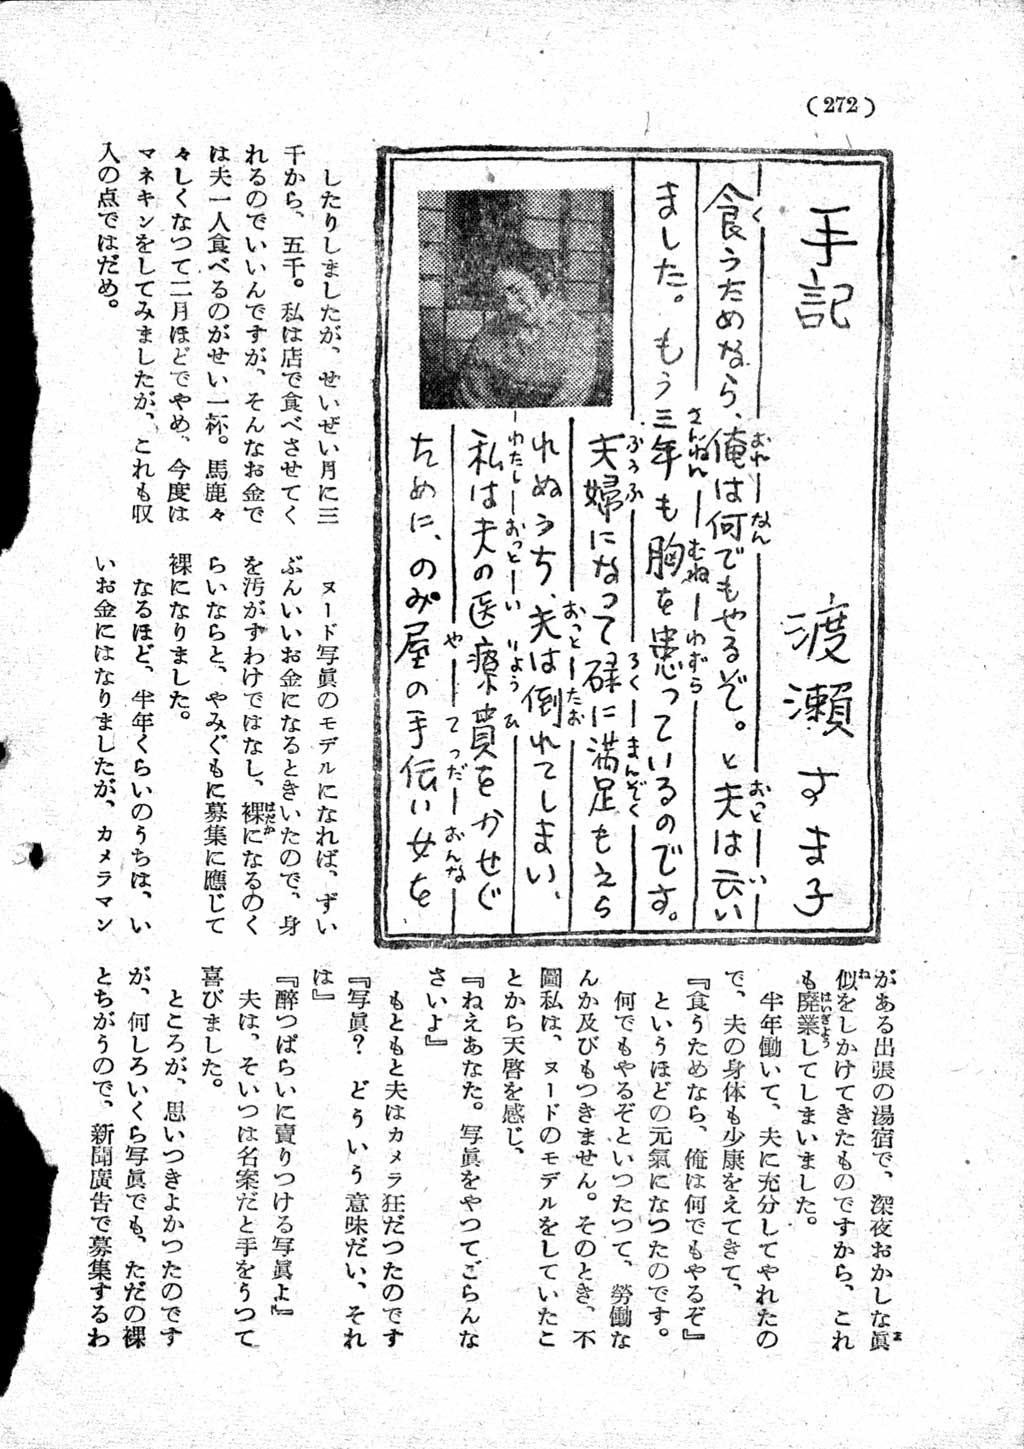 (272)
手記
渡瀬すま子
食うためなら、俺は何でもやるぞ。と夫は云い
ました。もう三年も胸を患っているのです。
夫婦になって碌に満足もえら
れぬうち、夫は倒れてしまい、
私は夫の医療費をかせぐ
ために、のみ屋の手伝い女を
したりしましたが、せいぜい月に三
千から、五千。私は店で食べさせてく
れるのでいいんですが、そんなお金で
は夫一人食べるのがせい一杯。馬鹿々
々しくなつて二月ほどでやめ、今度は
マネキンをしてみましたが、これも収
入の点ではだめ。
ヌード写眞のモデルになれば、ずい
ぶんいいお金になるときいたので、身
を汚がすわけではなし、裸になるのく
らいならと、やみくもに募集に應じて
裸になりました。
なるほど、半年くらいのうちは、い
いお金にはなりましたが、カメラマン
がある出張の湯宿で、深夜おかしな眞
似をしかけてきたものですから、これ
も廃業してしまいました。
半年働いて、夫に充分してやれたの
で、夫の身体も少康をえてきて、
『食うためなら、俺は何でもやるぞ』
というほどの元氣になつたのです。
何でもやるぞといつたつて、勞働な
んか及びもつきません。そのとき、不
圖私は、ヌードのモデルをしていたこ
とから天啓を感じ、
『ねえあなた。写眞をやつてごらんな
さいよ』
もともと夫はカメラ狂だつたのです
『写眞？　どういう意味だい、それ
は』
『醉つぱらいに賣りつける写眞よ』
夫は、そいつは名案だと手をうつて
喜びました。
ところが、思いつきよかつたのです
が、何しろいくら写眞でも、ただの裸
とちがうので、新聞廣告で募集するわ